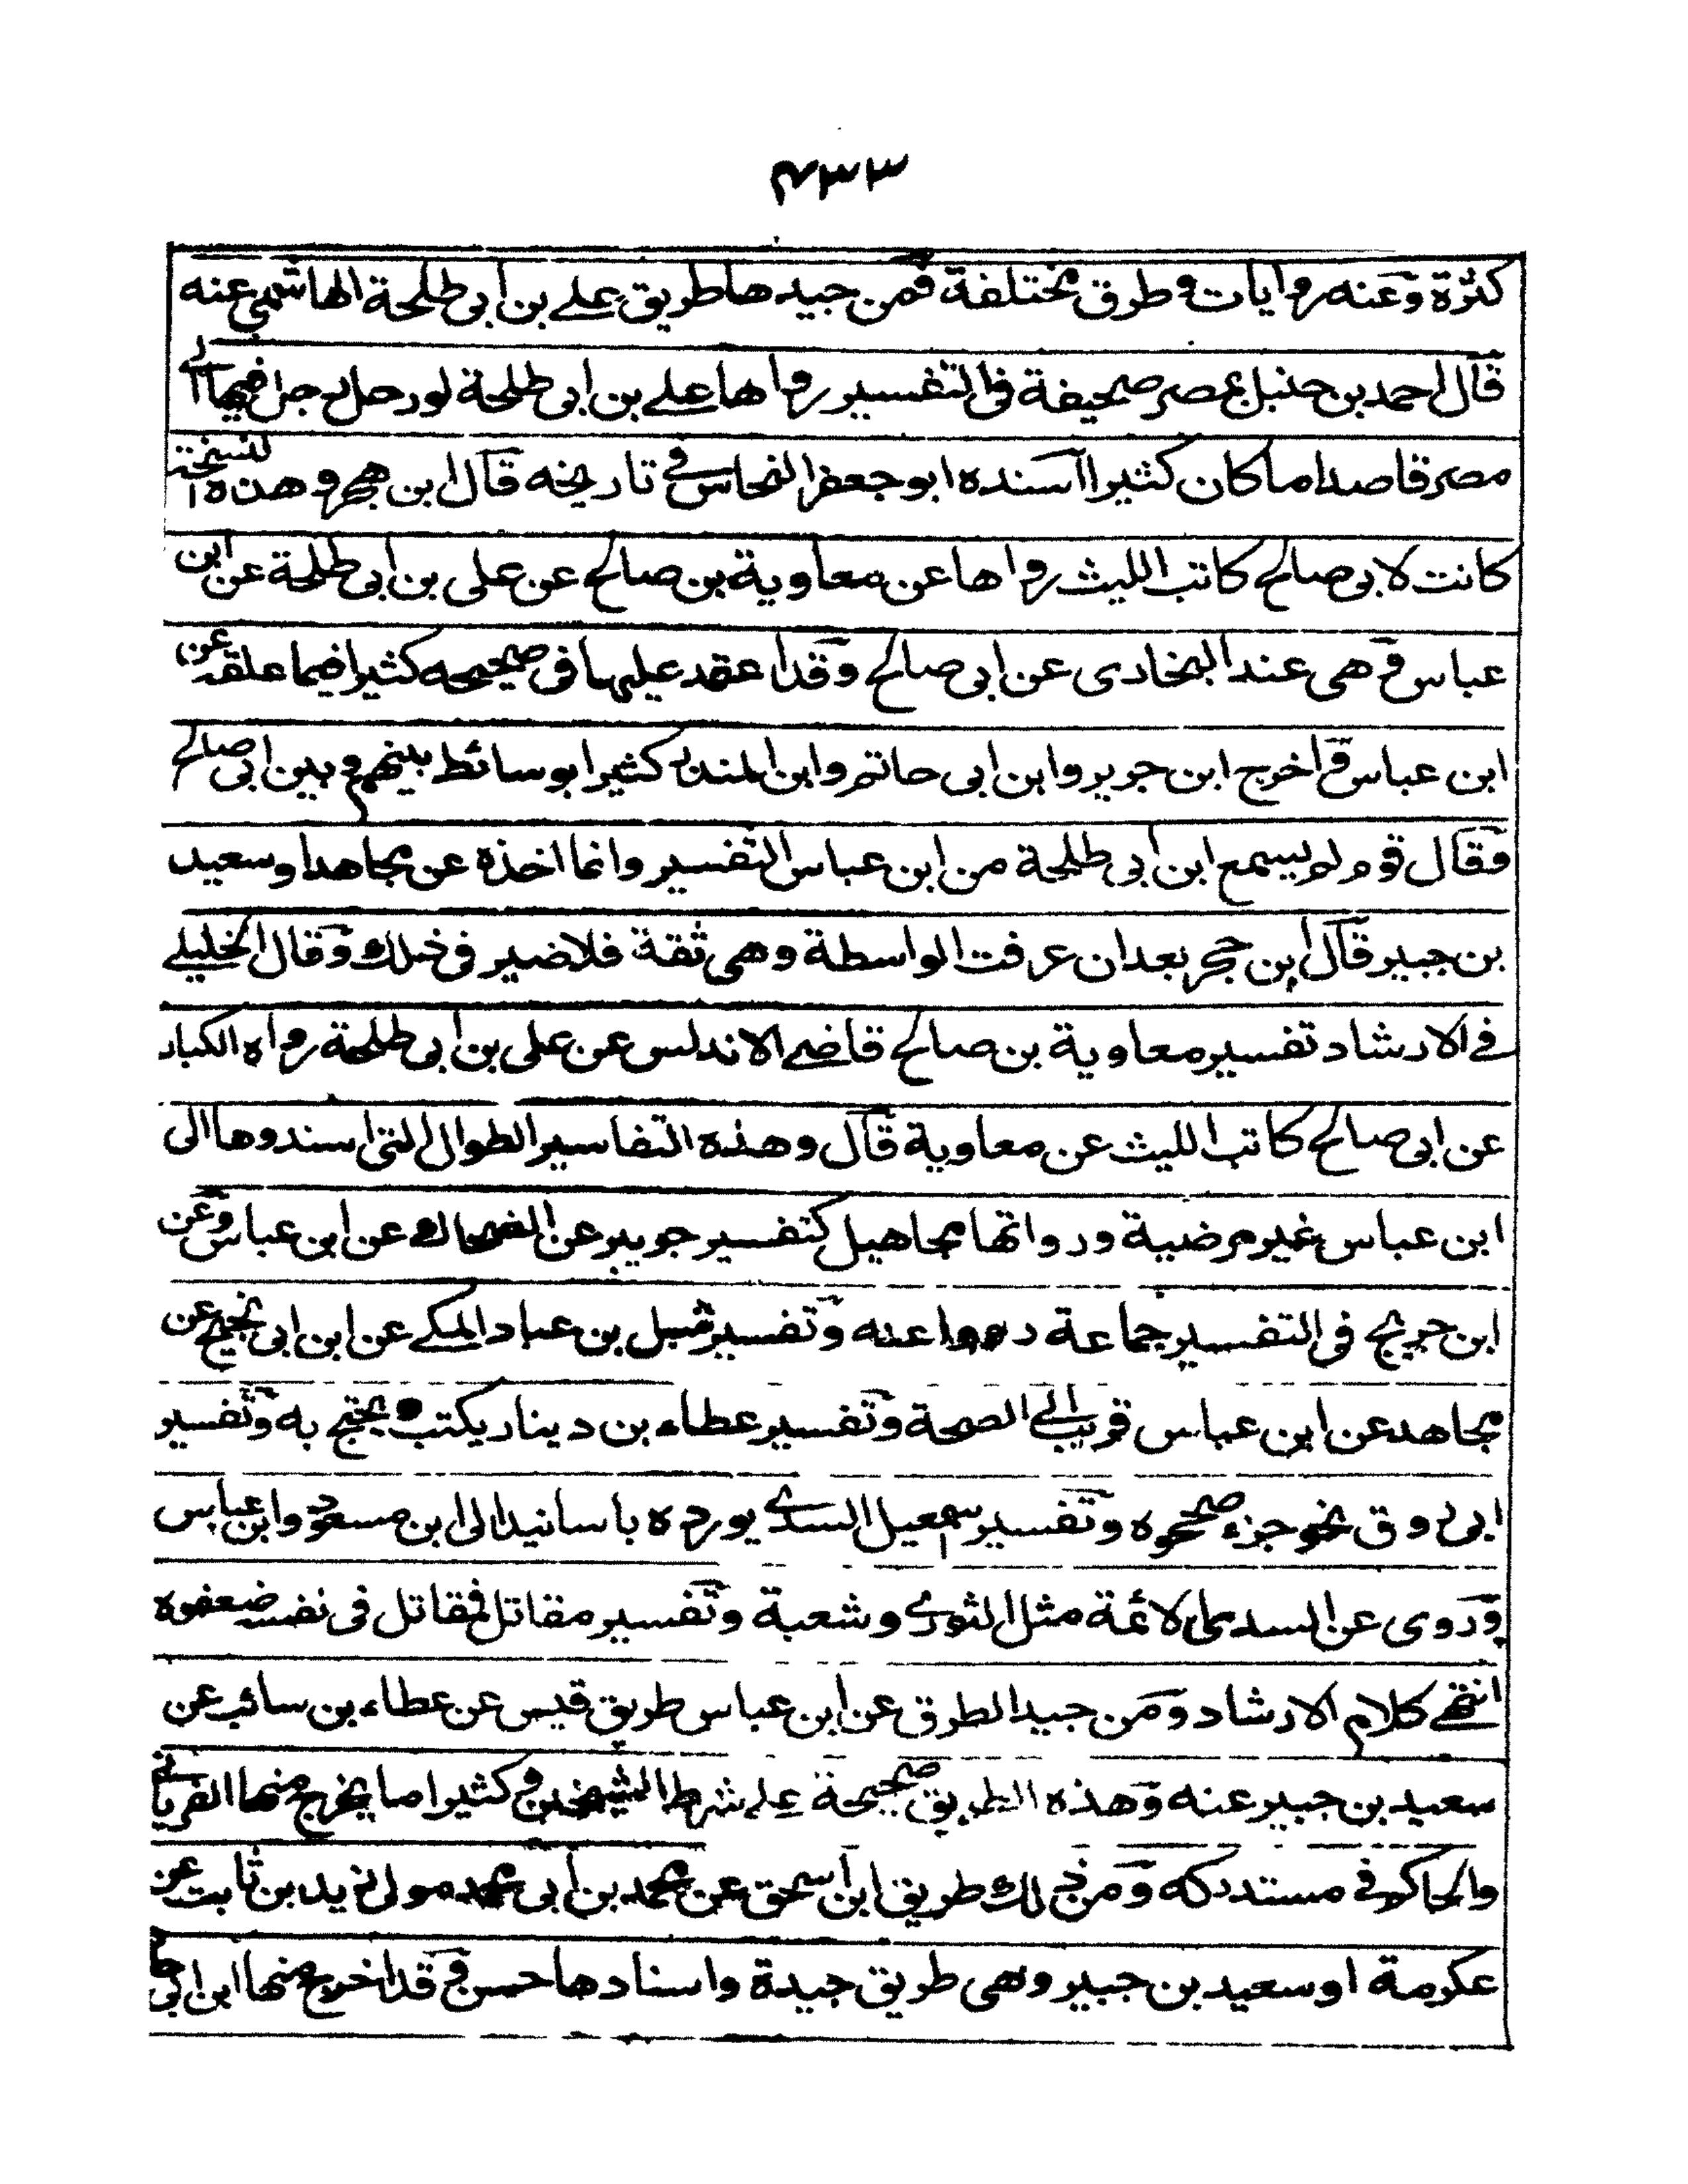 ٣٣٣
كثرة وعنه روايات وطرق مختلفة فمن جيدها طريق علے بن ابى طلحة الهاشمى عنه
قال احمد بن حنبل بمصر صحيفة فى التفسير رواها علے بن ابى طلحة لو رحل رجل فيها الے
مصر قاصدا ما كان كثيرا اسنده ابو جعفر النحاس فے تاريخه قال ابن حجر وهذه النسخة
كانت لابى صالح كاتب الليث رواها عن معاوية بن صالح عن على بن ابى طلحة عن ابن
عباس وهى عند البخارى عن ابى صالح وقد اعتمد عليها فى صحيحه كثيرا فيما علقه عن
ابن عباس واخرج ابن جرير وابن ابى حاتم وابن المنذر كثيرا بوسائط بينهم وبين ابى صالح
فقال قوم لم يسمع ابن ابى طلحة من ابن عباس التفسير وانما اخذه عن مجاهد او سعيد
بن جبير قال ابن حجر بعد ان عرفت الواسطة وهى ثقة فلا ضير فى ذلك وقال الخليلے
فے الارشاد تفسير معاوية بن صالح قاضے الاندلس عن على بن ابى طلحة رواه الكبار
عن ابى صالح كاتب الليث عن معاوية قال وهذه التفاسير الطوال التى اسندوها الى
ابن عباس غير مرضية ورواتها مجاهيل كتفسير جويبر عن الضحاك عن ابن عباس وعن
ابن جريج فى التفسير جماعة رووا عنه وتفسير شبل بن عباد المكے عن ابن ابى نجيح عن
مجاهد عن ابن عباس قريب الے الصحة وتفسير عطاء بن دينار يكتب ويحتج به وتفسير
ابى روق نحو جزء صححوه وتفسير اسمعيل السدے يورده باسانيد الى ابن مسعود وابن عباس
وروى عن السدى الائمة مثل الثورے وشعبة وتفسير مقاتل فمقاتل فى نفسه ضعفوه
انتهے كلام الارشاد ومن جيد الطرق عن ابن عباس طريق قيس عن عطاء بن سائب عن
سعيد بن جبير عنه وهذه الطريق صحيحة علے شرط الشيخين وكثيرا ما يخرج منها الفريابے
والحاكم فے مستدركه ومن ذلك طريق ابن اسحق عن محمد بن ابى محمد مولى زيد بن ثابت عن
عكرمة او سعيد بن جبير وهى طريق جيدة واسنادها حسن وقد اخرج منها ابن ابى حا